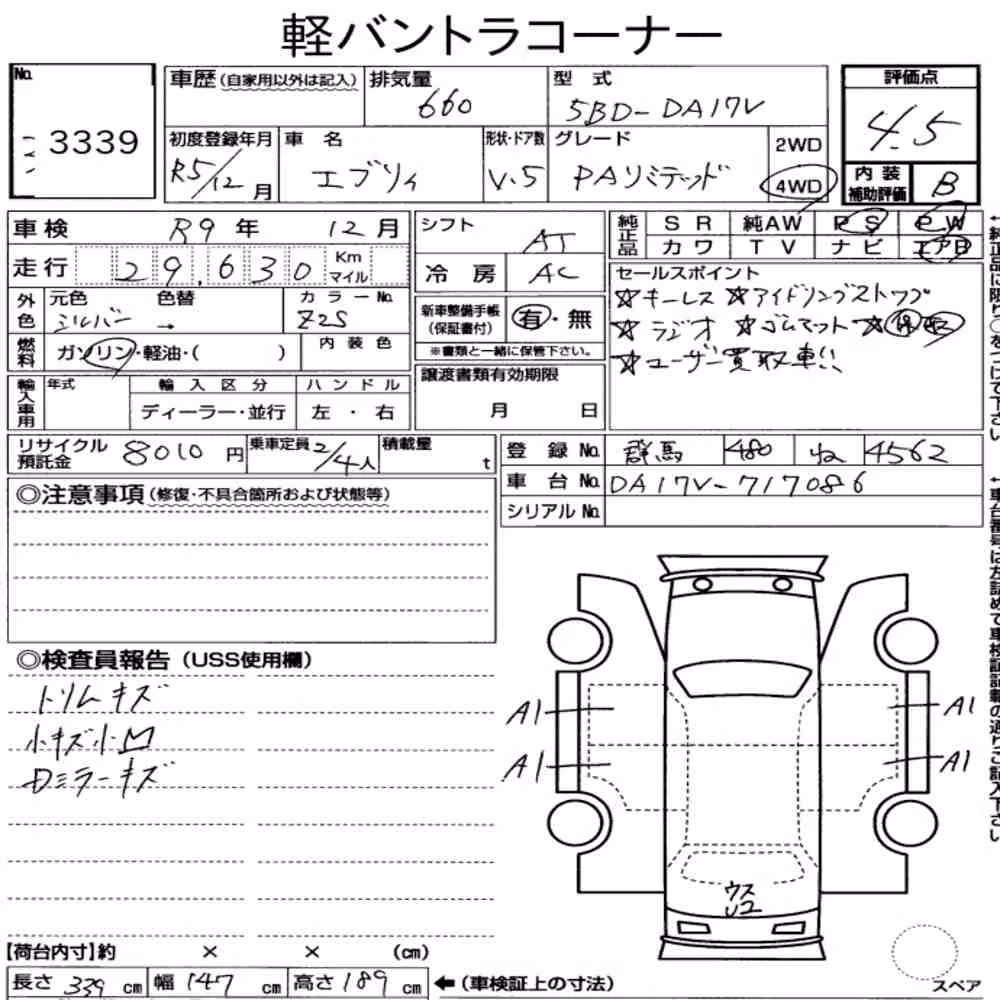 軽バントラコーナー
No. 3339
車歴(自家用以外は記入)
排気量 660
型式 5BD-DA17V
評価点 4.5
初度登録年月 R5/12月
車名 エブリィ
形状・ドア数 V.5
グレード PAリミテッド
2WD
4WD
内装補助評価 B
車検 R9年 12月
走行 29,630 Km マイル
外色 元色 シルバー 色替 → カラーNo. Z2S
燃料 ガソリン・軽油・( ) 内装色
輸入車用 年式 輸入区分 ハンドル
ディーラー・並行 左・右
シフト AT
冷房 AC
新車整備手帳(保証書付) 有・無
※書類と一緒に保管下さい。
譲渡書類有効期限
月 日
純正品 SR 純AW PS PW
カワ TV ナビ エアB
セールスポイント
☆キーレス ☆アイドリングストップ
☆ラジオ ☆ゴムマット ☆保 取
☆ユーザー買取車!!
リサイクル預託金 8010円
乗車定員 2/4人
積載量 t
登録No. 群馬 480 ね 4562
車台No. DA17V-717086
シリアルNo.
◎注意事項(修復・不具合箇所および状態等)
◎検査員報告(USS使用欄)
トリムキズ
小キズ小凹
Dミラーキズ
A1
A1
A1
A1
ウス
【荷台内寸】約 × × (cm)
長さ 339 cm 幅 147 cm 高さ 189 cm ←(車検証上の寸法)
スペア
↑純正品に限り○をつけて下さい
↑車台番号は左詰めで車検証記載の通りご記入下さい